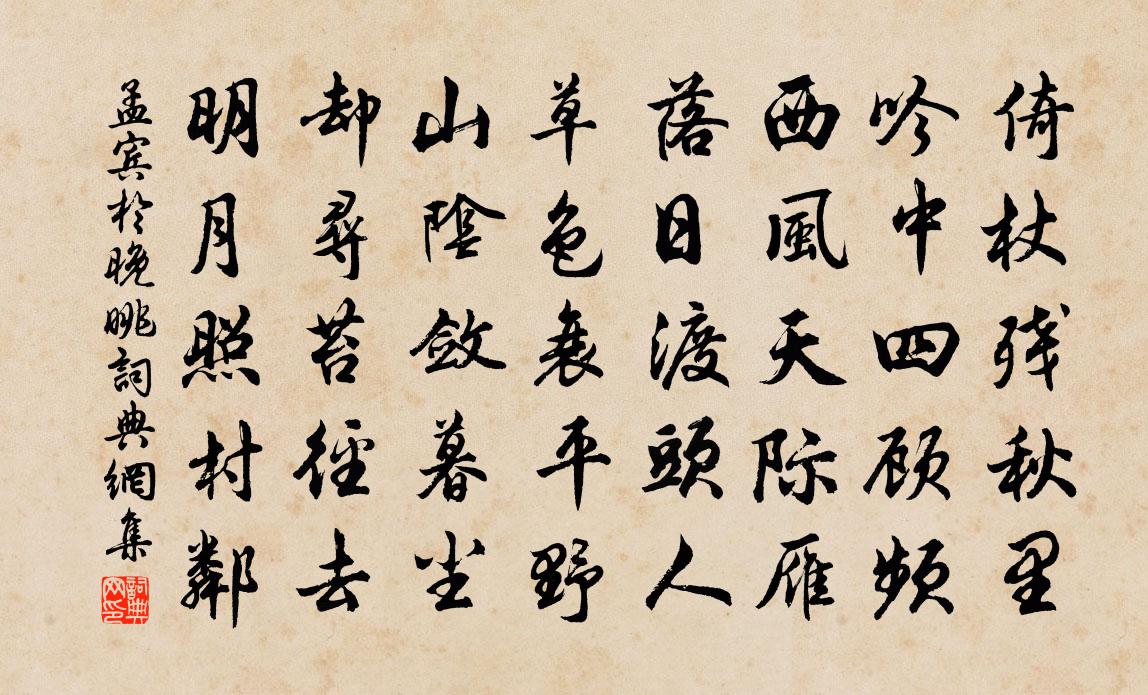 倚杖残秋里
吟中四顾频
西風天际雁
落日渡頭人
草色衰平野
山陰斂暮尘
却尋苔徑去
明月照村鄰
孟賓於晚眺詞典網集
詞典网印